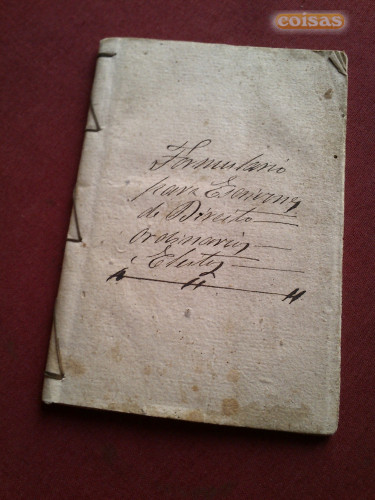 coisas
Formulario
para Escrivons
de Direito
ordinarios
e Eleitos